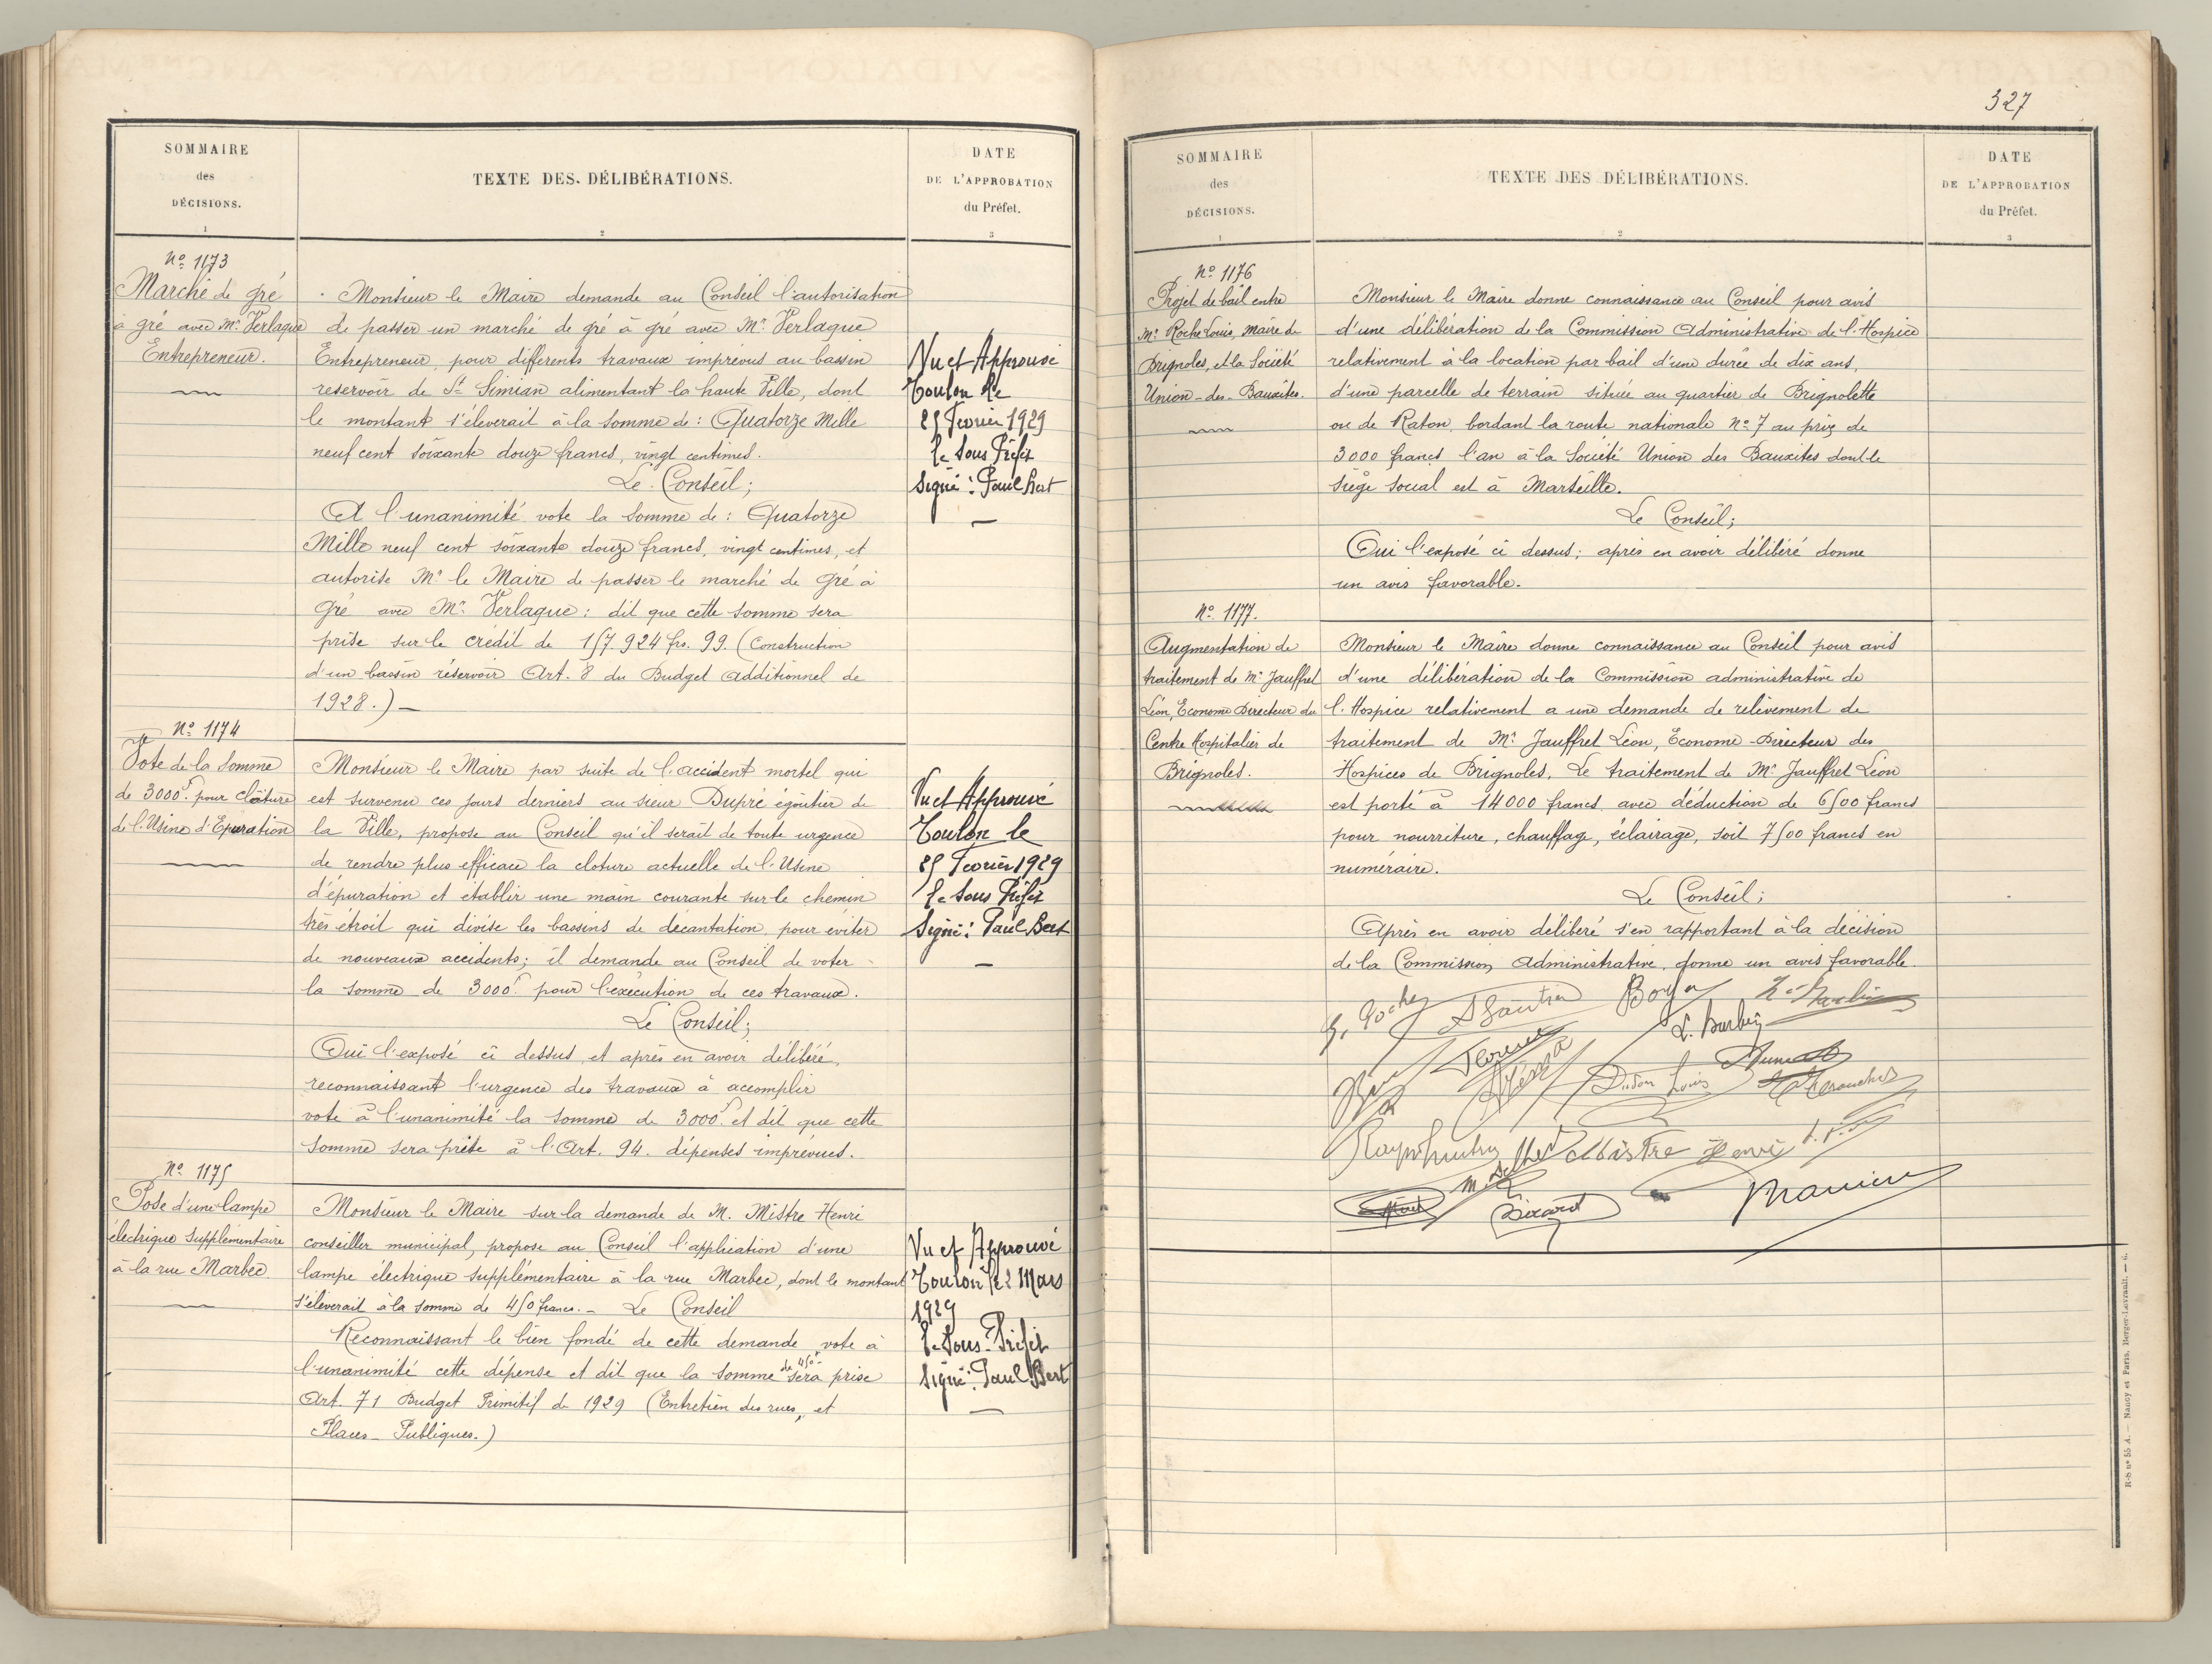 327
SOMMAIRE
des
DÉCISIONS.
1
TEXTE DES DÉLIBÉRATIONS.
2
DATE
DE L'APPROBATION
du Préfet.
3
No 1173
Marché de gré
à gré avec Mr Verlaque
Entrepreneur.
Monsieur le Maire demande au Conseil l'autorisation
de passer un marché de gré à gré avec Mr Verlaque
Entrepreneur, pour différents travaux imprévus au bassin
reservoir de St Simian alimentant la haute Ville, dont
le montant s'éleverait à la somme de : Quatorze Mille
neuf cent soixante douze francs, vingt centimes.
Le Conseil;
A l'unanimité vote la somme de : Quatorze
Mille neuf cent soixante douze francs, vingt centimes, et
autorise Mr le Maire de passer le marché de gré à
gré avec Mr Verlaque : dit que cette somme sera
prise sur le crédit de 157.924 frs. 99. (Construction
d'un bassin réservoir Art. 8 du Budget Additionnel de
1928.) —
Vu et Approuvé
Toulon le
25 Fevrier 1929
le Sous Préfet
Signé : Paul Bert
No 1174
Vote de la Somme
de 3000f. pour clôture
de l'Usine d'Epuration
Monsieur le Maire par suite de l'accident mortel qui
est survenu ces jours derniers au sieur Dupré égoutier de
la Ville, propose au Conseil qu'il serait de toute urgence
de rendre plus efficace la cloture actuelle de l'Usine
d'épuration et établir une main courante sur le chemin
très étroit qui divise les bassins de décantation pour éviter
de nouveaux accidents; il demande au Conseil de voter
la somme de 3000f. pour l'exécution de ces travaux.
Le Conseil;
Oui l'exposé ci dessus et après en avoir délibéré,
reconnaissant l'urgence des travaux à accomplir
vote à l'unanimité la somme de 3000f. et dit que cette
somme sera prise à l'Art. 94. dépenses imprévues.
Vu et Approuvé
Toulon le
25 Fevrier 1929
le Sous Préfet
Signé : Paul Bert
No 1175
Pose d'une lampe
électrique supplémentaire
à la rue Marbec
Monsieur le Maire sur la demande de M. Mistre Henri
conseiller municipal, propose au Conseil l'application d'une
lampe électrique supplémentaire à la rue Marbec, dont le montant
s'éleverait à la somme de 450 francs. - Le Conseil
Reconnaissant le bien fondé de cette demande vote à
l'unanimité cette dépense et dit que la somme de 450f sera prise
Art. 71 Budget Primitif de 1929 (Entretien des rues, et
Places Publiques.)
Vu et Approuvé
Toulon le 2 Mars
1929
le Sous-Préfet
Signé : Paul Bert
SOMMAIRE
des
DÉCISIONS.
1
TEXTE DES DÉLIBÉRATIONS.
2
DATE
DE L'APPROBATION
du Préfet.
3
No 1176
Projet de bail entre
Mr Roche Louis, Maire de
Brignoles, et la Société
Union-des-Bauxites.
Monsieur le Maire donne connaissance au Conseil pour avis
d'une délibération de la Commission Administrative de l'Hospice
relativement à la location par bail d'une durée de dix ans,
d'une parcelle de terrain située au quartier de Brignolette
ou de Raton, bordant la route nationale No 7 au prix de
3000 francs l'an à la Société Union des Bauxites dont le
siège social est à Marseille.
Le Conseil;
Oui l'exposé ci dessus; après en avoir délibéré donne
un avis favorable.
No 1177.
Augmentation de
traitement de Mr Jauffret
Léon, Econome Directeur du
Centre Hospitalier de
Brignoles.
Monsieur le Maire donne connaissance au Conseil pour avis
d'une délibération de la Commission administrative de
l'Hospice relativement a une demande de relèvement de
traitement de Mr Jauffret Léon, Econome-Directeur des
Hospices de Brignoles. Le traitement de Mr Jauffret Léon
est porté à 14000 francs avec déduction de 6500 francs
pour nourriture, chauffage, éclairage, soit 7500 francs en
numéraire.
Le Conseil;
Après en avoir délibéré s'en rapportant à la décision
de la Commission Administrative, donne un avis favorable.
Boyer
L. Barbey
Mistre Henri
Sicard
R-S no 55 A. — Nancy et Paris, Berger-Levrault. — 6.